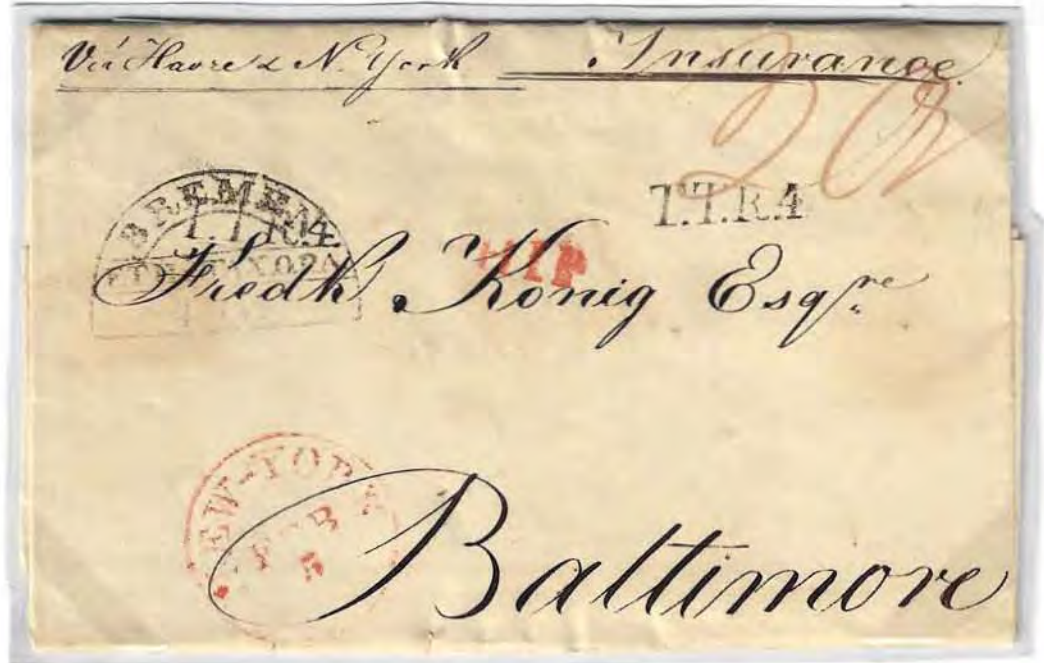 Via Havre & N. York Insurance.
20
BREMEN
T.T.R.4.
T.T.R.4
Fredk. König Esqre
NEW-YORK
FEB
5
Baltimore